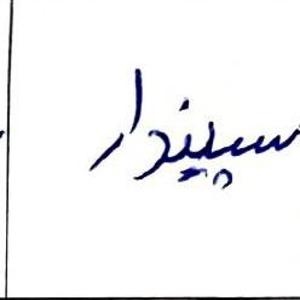 سپیندار